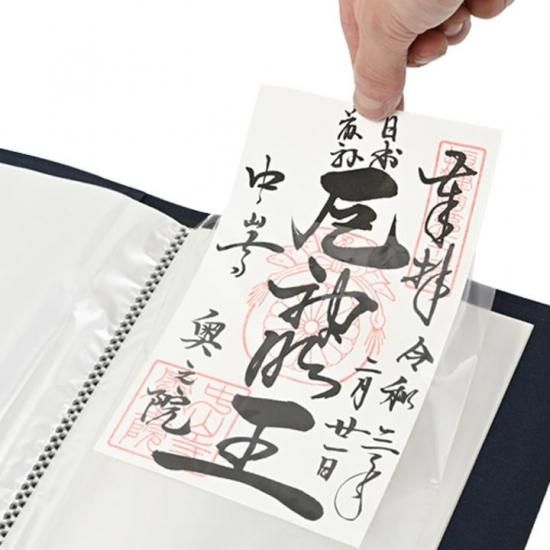 奉拝
令和三年
二月廿一日
日本
最初
厄神明王
中山寺
奥之院